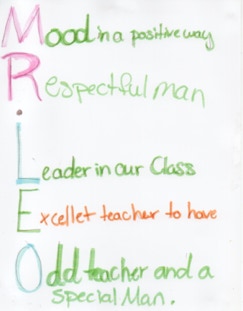 Mood in a positive way
Respectful man
.
Leader in our Class
Excellet teacher to have
Odd teacher and a
Special Man.